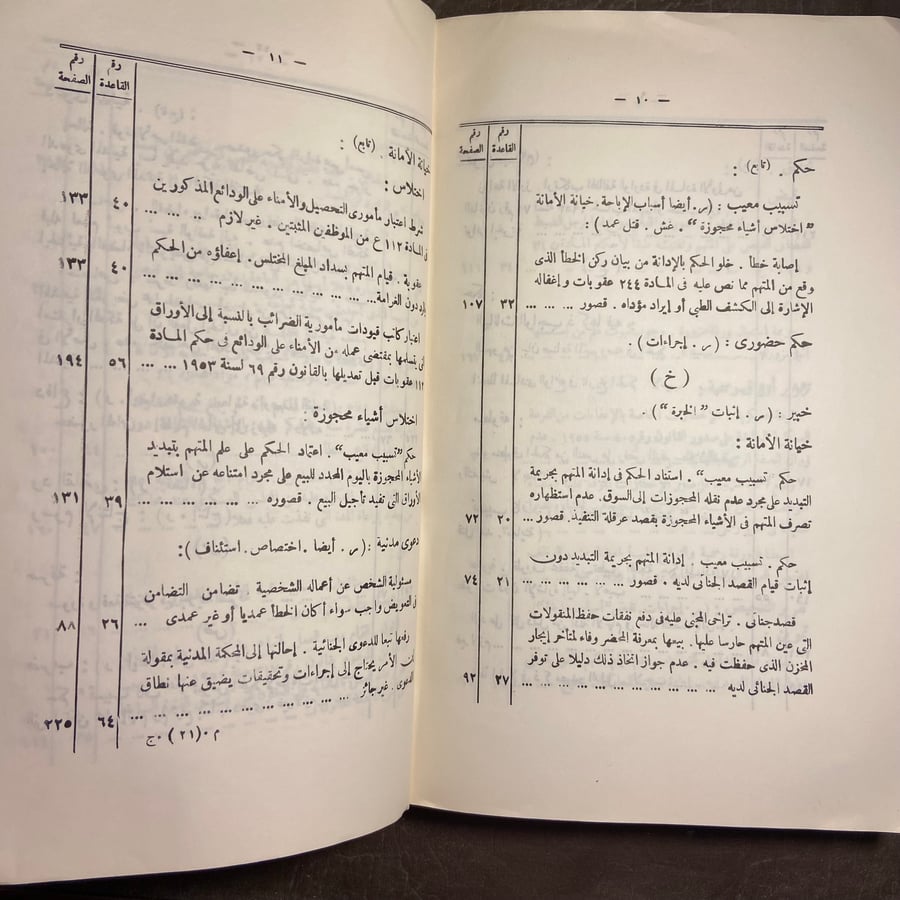 — ١٠ —
رقم القاعدة
رقم الصفحة
حكم . (تابع) :
تسبيب معيب : (ر . أيضا أسباب الإباحة . خيانة الأمانة
"اختلاس أشياء محجوزة" . غش . قتل عمد) :
إصابة خطأ . خلو الحكم بالإدانة من بيان ركن الخطأ الذى
وقع من المتهم مما نص عليه فى المادة ٢٤٤ عقوبات وإغفاله
الإشارة إلى الكشف الطبي أو إيراد مؤداه . قصور ... ... ٣٢ ١٠٧
حكم حضورى : (ر . إجراءات) .
(خ)
خبير : (ر . إثبات "الخبرة") .
خيانة الأمانة :
حكم "تسبيب معيب" . استناد الحكم فى إدانة المتهم بجريمة
التبديد على مجرد عدم نقله المحجوزات إلى السوق . عدم استظهاره
تصرف المتهم فى الأشياء المحجوزة بقصد عرقلة التنفيذ . قصور ... ٢٠ ٧٢
حكم . تسبيب معيب . إدانة المتهم بجريمة التبديد دون
إثبات قيام القصد الجنائى لديه . قصور ... ... ... ... ... ... ٢١ ٧٤
قصد جنائى . تراخى المجنى عليه فى دفع نفقات حفظ المنقولات
التى عين المتهم حارسا عليها . بيعها بمعرفة المحضر وفاء لمتأخر إيجار
المخزن الذى حفظت فيه . عدم جواز اتخاذ ذلك دليلا على توفر
القصد الجنائى لديه ... ... ... ... ... ... ... ... ... ٢٧ ٩٢
— ١١ —
رقم القاعدة
رقم الصفحة
خيانة الأمانة . (تابع) :
اختلاس :
شرط اعتبار مأمورى التحصيل والأمناء على الودائع المذكورين
فى المادة ١١٢ ع من الموظفين المثبتين . غير لازم ... ... ... ٤٠ ١٣٣
عقوبة . قيام المتهم بسداد المبلغ المختلس . إعفاؤه من الحكم
بالرد دون الغرامة ... ... ... ... ... ... ... ... ... ... ٤٠ ١٣٣
اعتبار كاتب قيودات مأمورية الضرائب بالنسبة إلى الأوراق
التى يتسلمها بمقتضى عمله من الأمناء على الودائع فى حكم المادة
١١٢ عقوبات قبل تعديلها بالقانون رقم ٦٩ لسنة ١٩٥٣ ... ... ٥٦ ١٩٤
اختلاس أشياء محجوزة :
حكم "تسبيب معيب" . اعتماد الحكم على علم المتهم بتبديد
الأشياء المحجوزة باليوم المحدد للبيع على مجرد امتناعه عن استلام
الأوراق التى تفيد تأجيل البيع . قصوره ... ... ... ... ... ... ٣٩ ١٣١
دعوى مدنية : (ر . أيضا . اختصاص . استئناف) :
مسئولية الشخص عن أعماله الشخصية . تضامن . التضامن
فى التعويض واجب سواء أكان الخطأ عمديا أو غير عمدى ... ٢٦ ٨٨
رفعها تبعا للدعوى الجنائية . إحالتها إلى المحكمة المدنية بمقولة
إن الأمر يحتاج إلى إجراءات وتحقيقات يضيق عنها نطاق
الدعوى . غير جائز ... ... ... ... ... ... ... ... ... ٦٤ ٢٢٥
م . (٢١) . ج